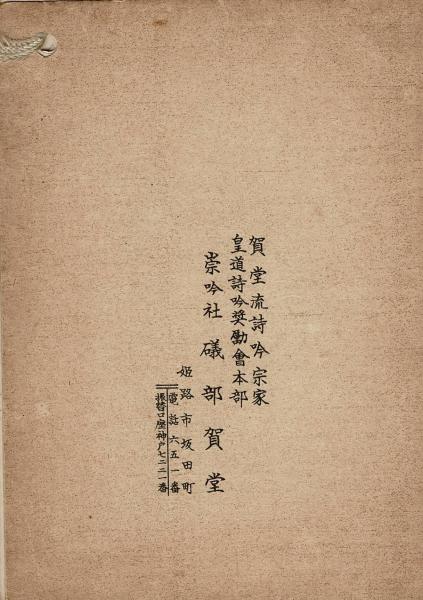 賀堂流詩吟宗家
皇道詩吟奨励會本部
崇吟社 礒部賀堂
姫路市坂田町
電話六五一番
振替口座神戸七二二一番